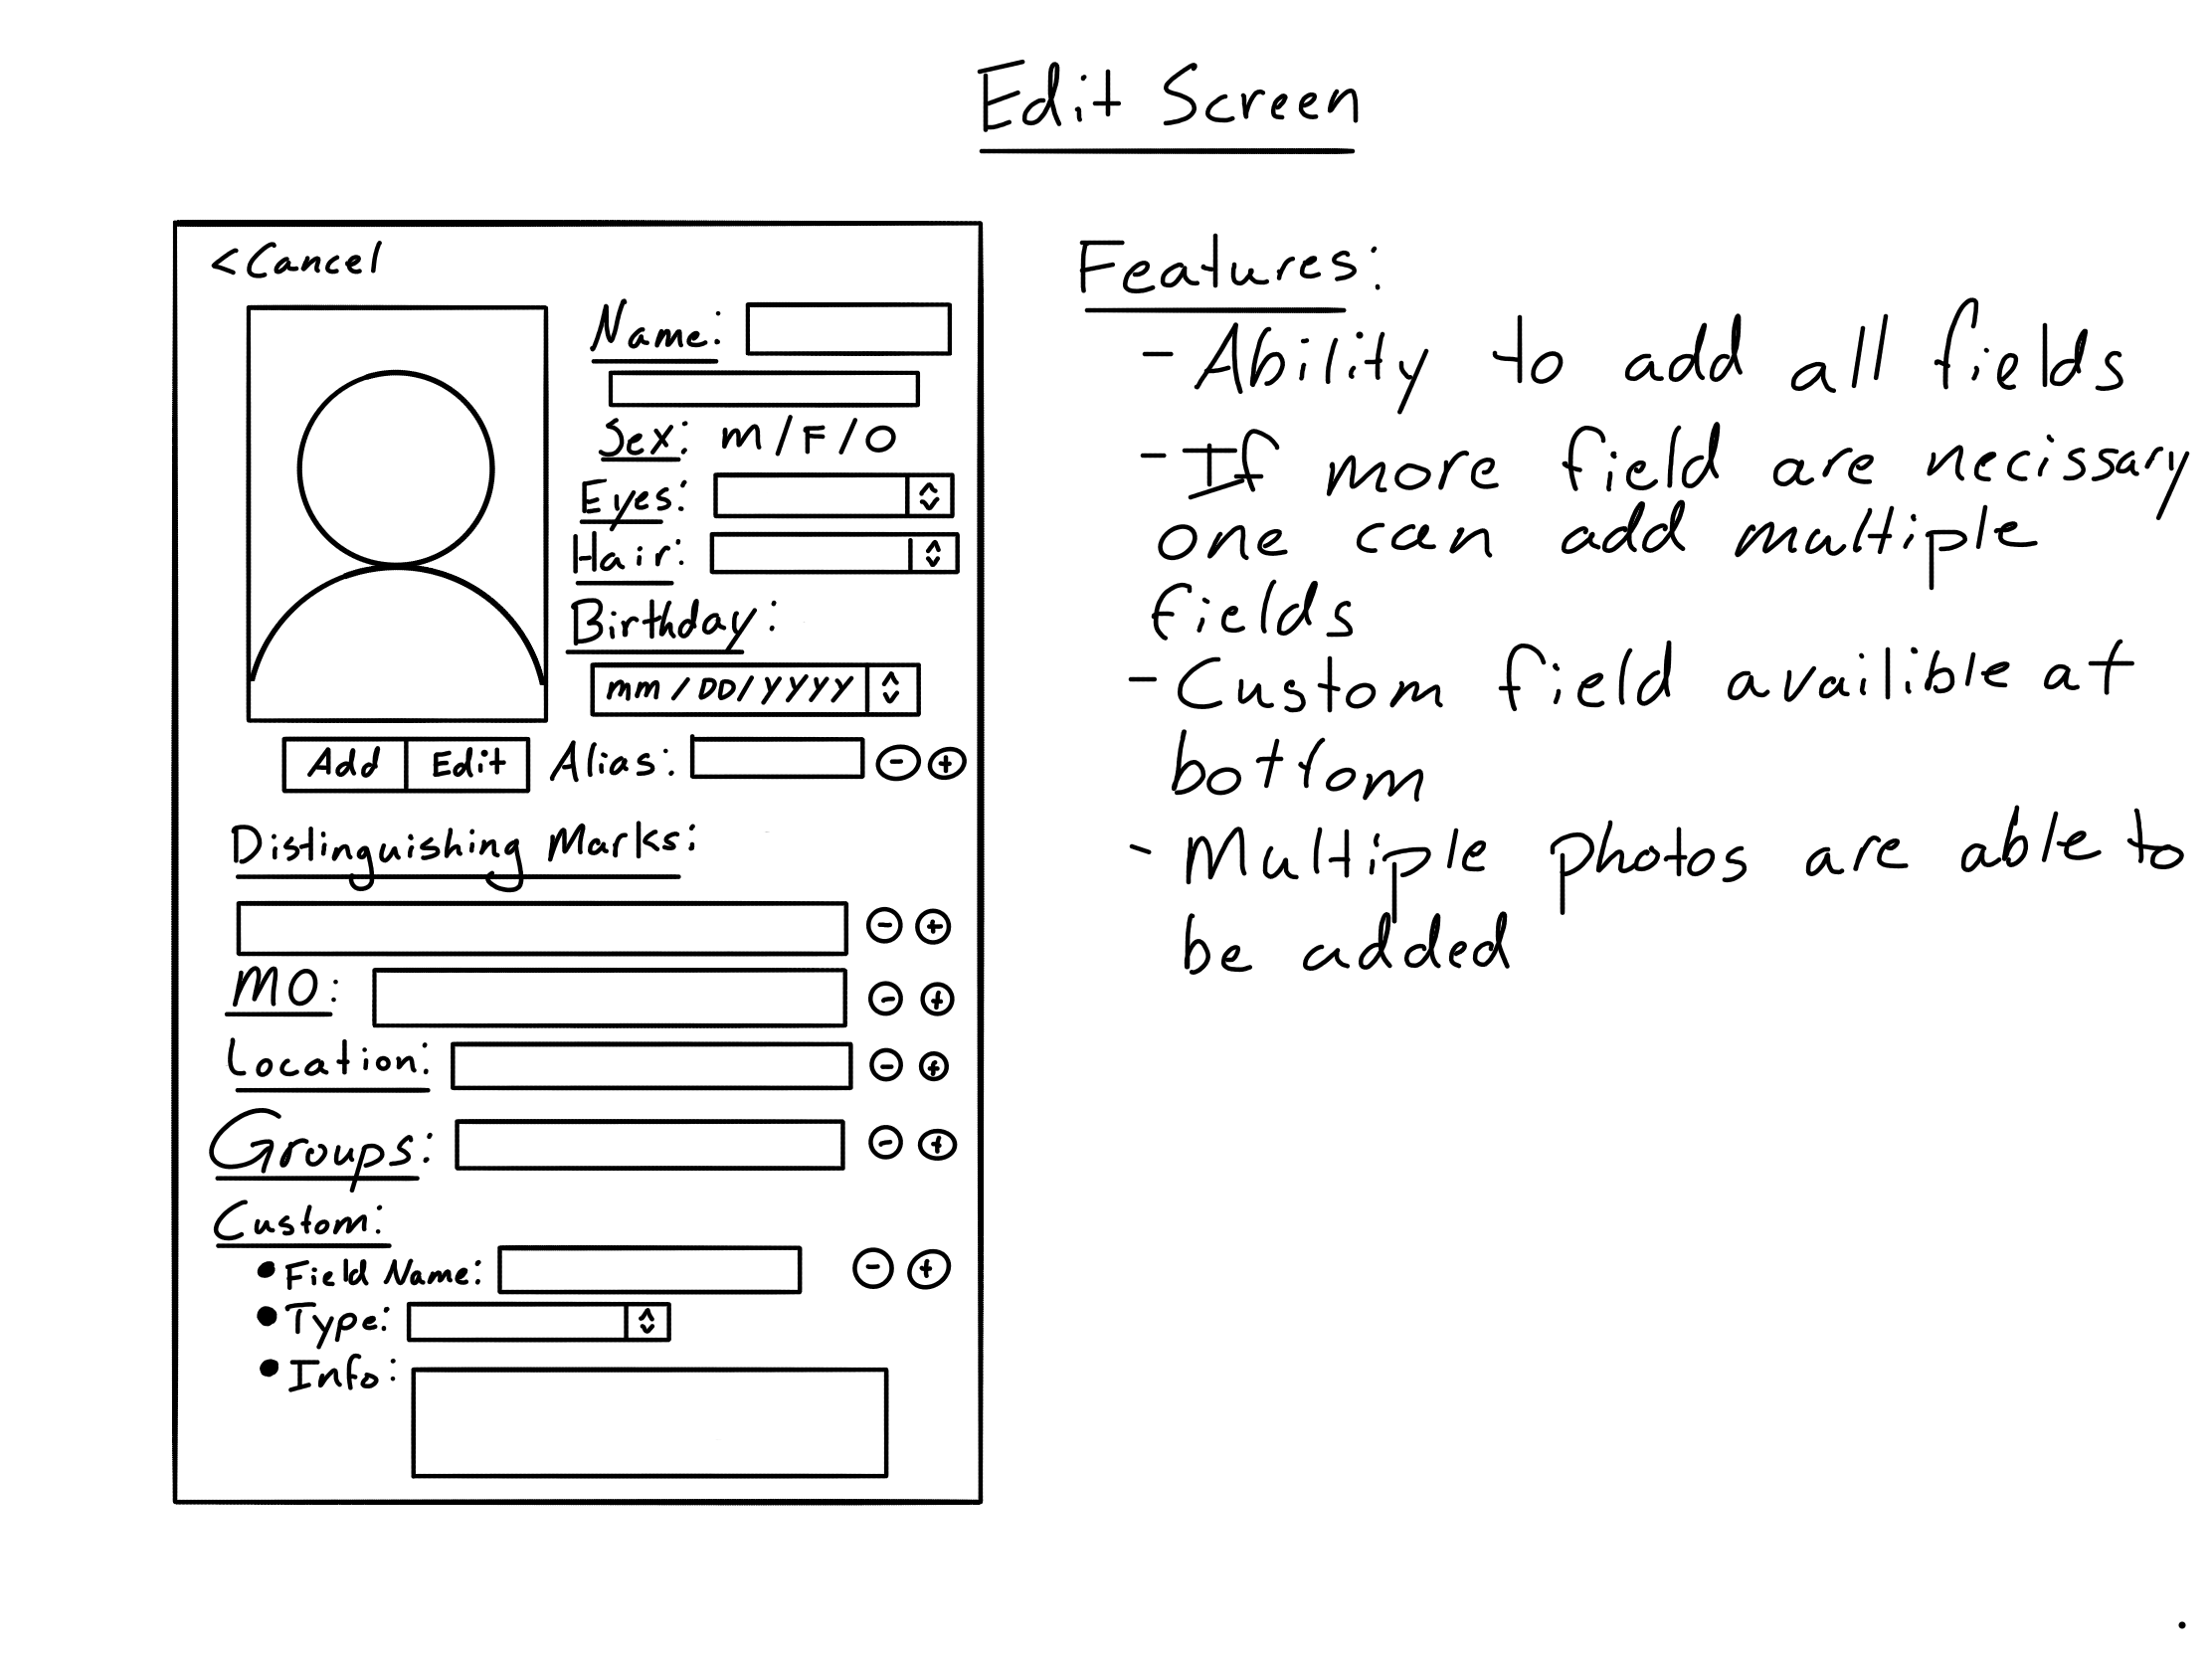 Edit Screen
<Cancel
Name:
Sex: M/F/O
Eyes:
Hair:
Birthday:
MM/DD/YYYY
Add Edit
Alias: - +
Distinguishing Marks:
- +
MO: - +
Location: - +
Groups: - +
Custom:
• Field Name: - +
• Type:
• Info:
Features:
- Ability to add all fields
- If more field are necissary
one can add multiple
fields
- Custom field availible at
bottom
- Multiple photos are able to
be added